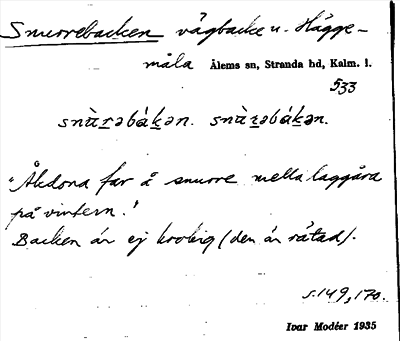 Snurrebacken vägbacke u. Hägge-
måla Ålems sn, Stranda hd, Kalm. l.
533
snùr̲əbák̲ən. snùr̲əbák̲ən.
"Åkdona far å snurre mella laggåra
på vintern."
Backen är ej krokig (den är rätad).
s. 149, 170.
Ivar Modéer 1935